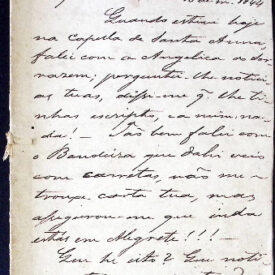 1844
Quando estive hoje
na Capella de Santa Anna,
falei com a Angelica do
nazem; perguntei-lhe noticias
tuas, disse-me q. lhe ti
nhas escripto, e a mim na-
da! — Tão bem falei com
o Bandeira que dahi veio
com carretas, não me
trouxe carta tua, mas
assegurou-me que inda
estás em Alegrete!!! —
Que he isto? Que noti-